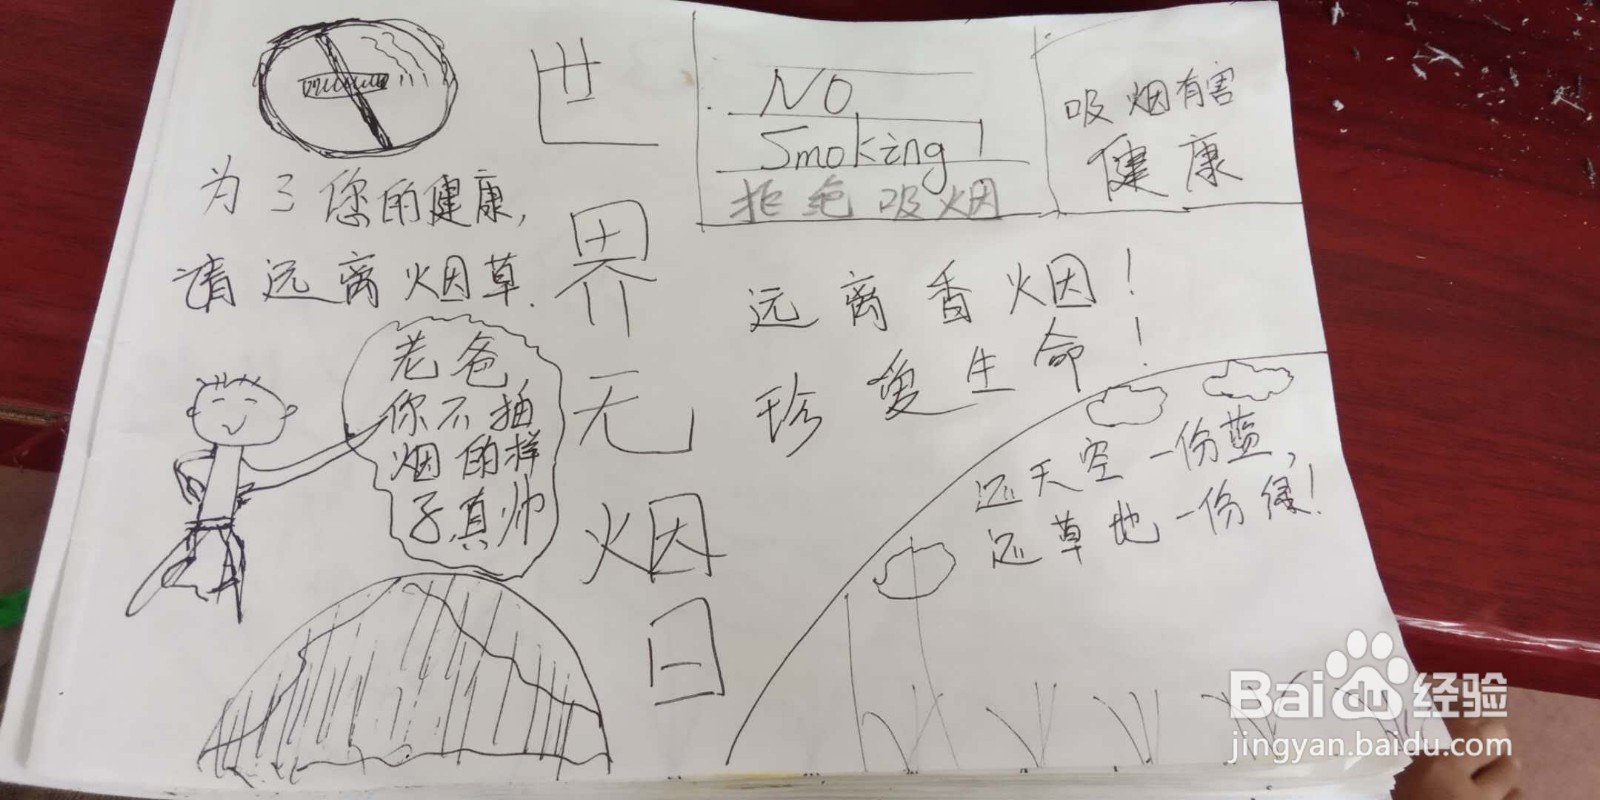 为了您的健康,
请远离烟草.
老爸
你不抽
烟的样
子真帅
世界无烟日
No
Smoking!
拒绝吸烟
吸烟有害
健康
远离香烟!
珍爱生命!
还天空一份蓝,
还草地一份绿!
Baidu经验
jingyan.baidu.com